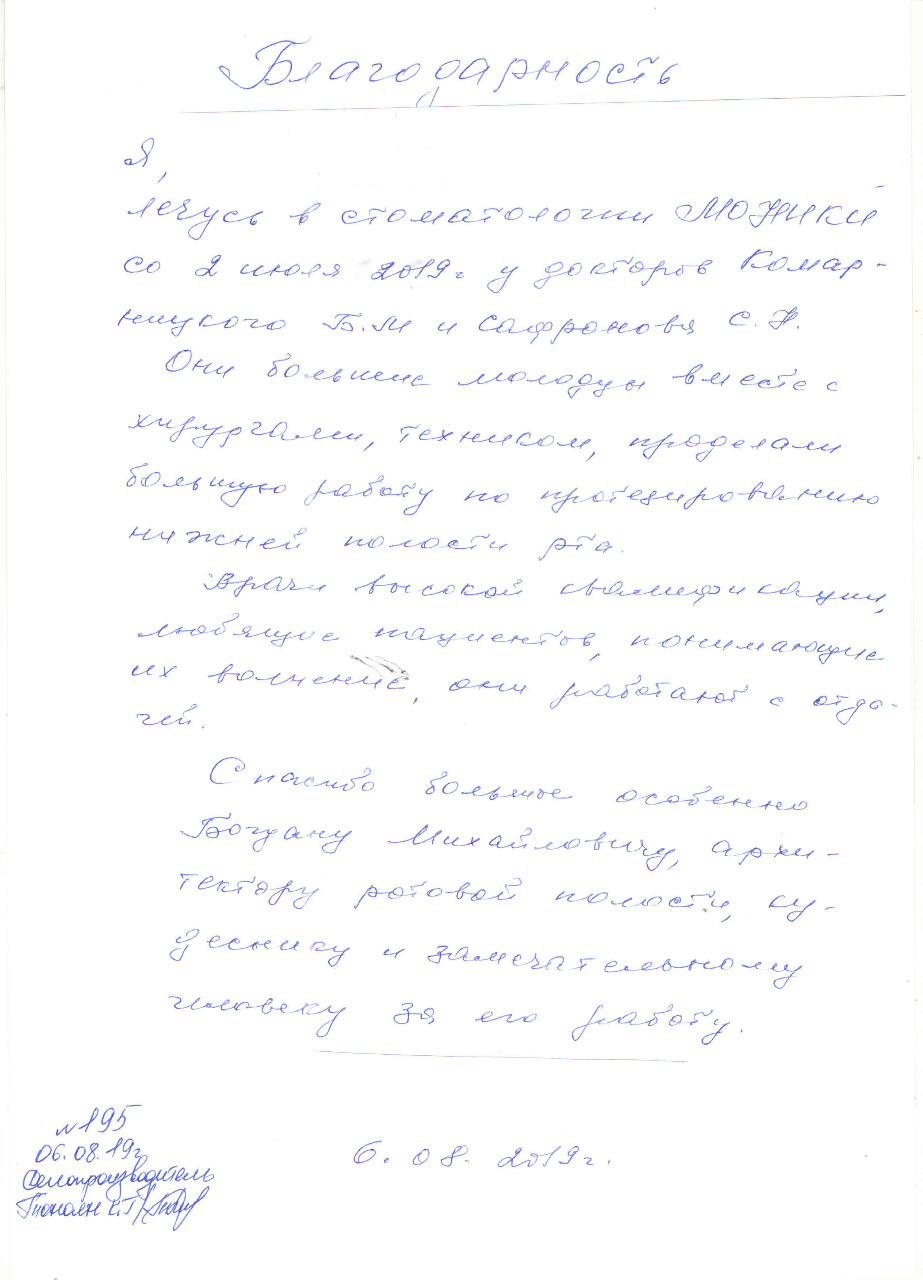 Благодарность
Я,
лечусь в стоматологии МОНИКИ
со 2 июля 2019г у докторов Комар-
ницкого Б.М и Сафронова С. Н.
Они большие молодцы вместе с
хирургами, техником, проделали
большую работу по протезированию
нижней полости рта.
Врачи высокой квалификации,
любящие пациентов, понимающие
их волнение, они работают с отда-
чей.
Спасибо большое особенно
Богдану Михайловичу, архи-
тектору ротовой полости, ку-
деснику и замечательному
человеку за его работу.
6. 08. 2019г.
№195
06.08.19г
Делопроизводитель
К.Г.